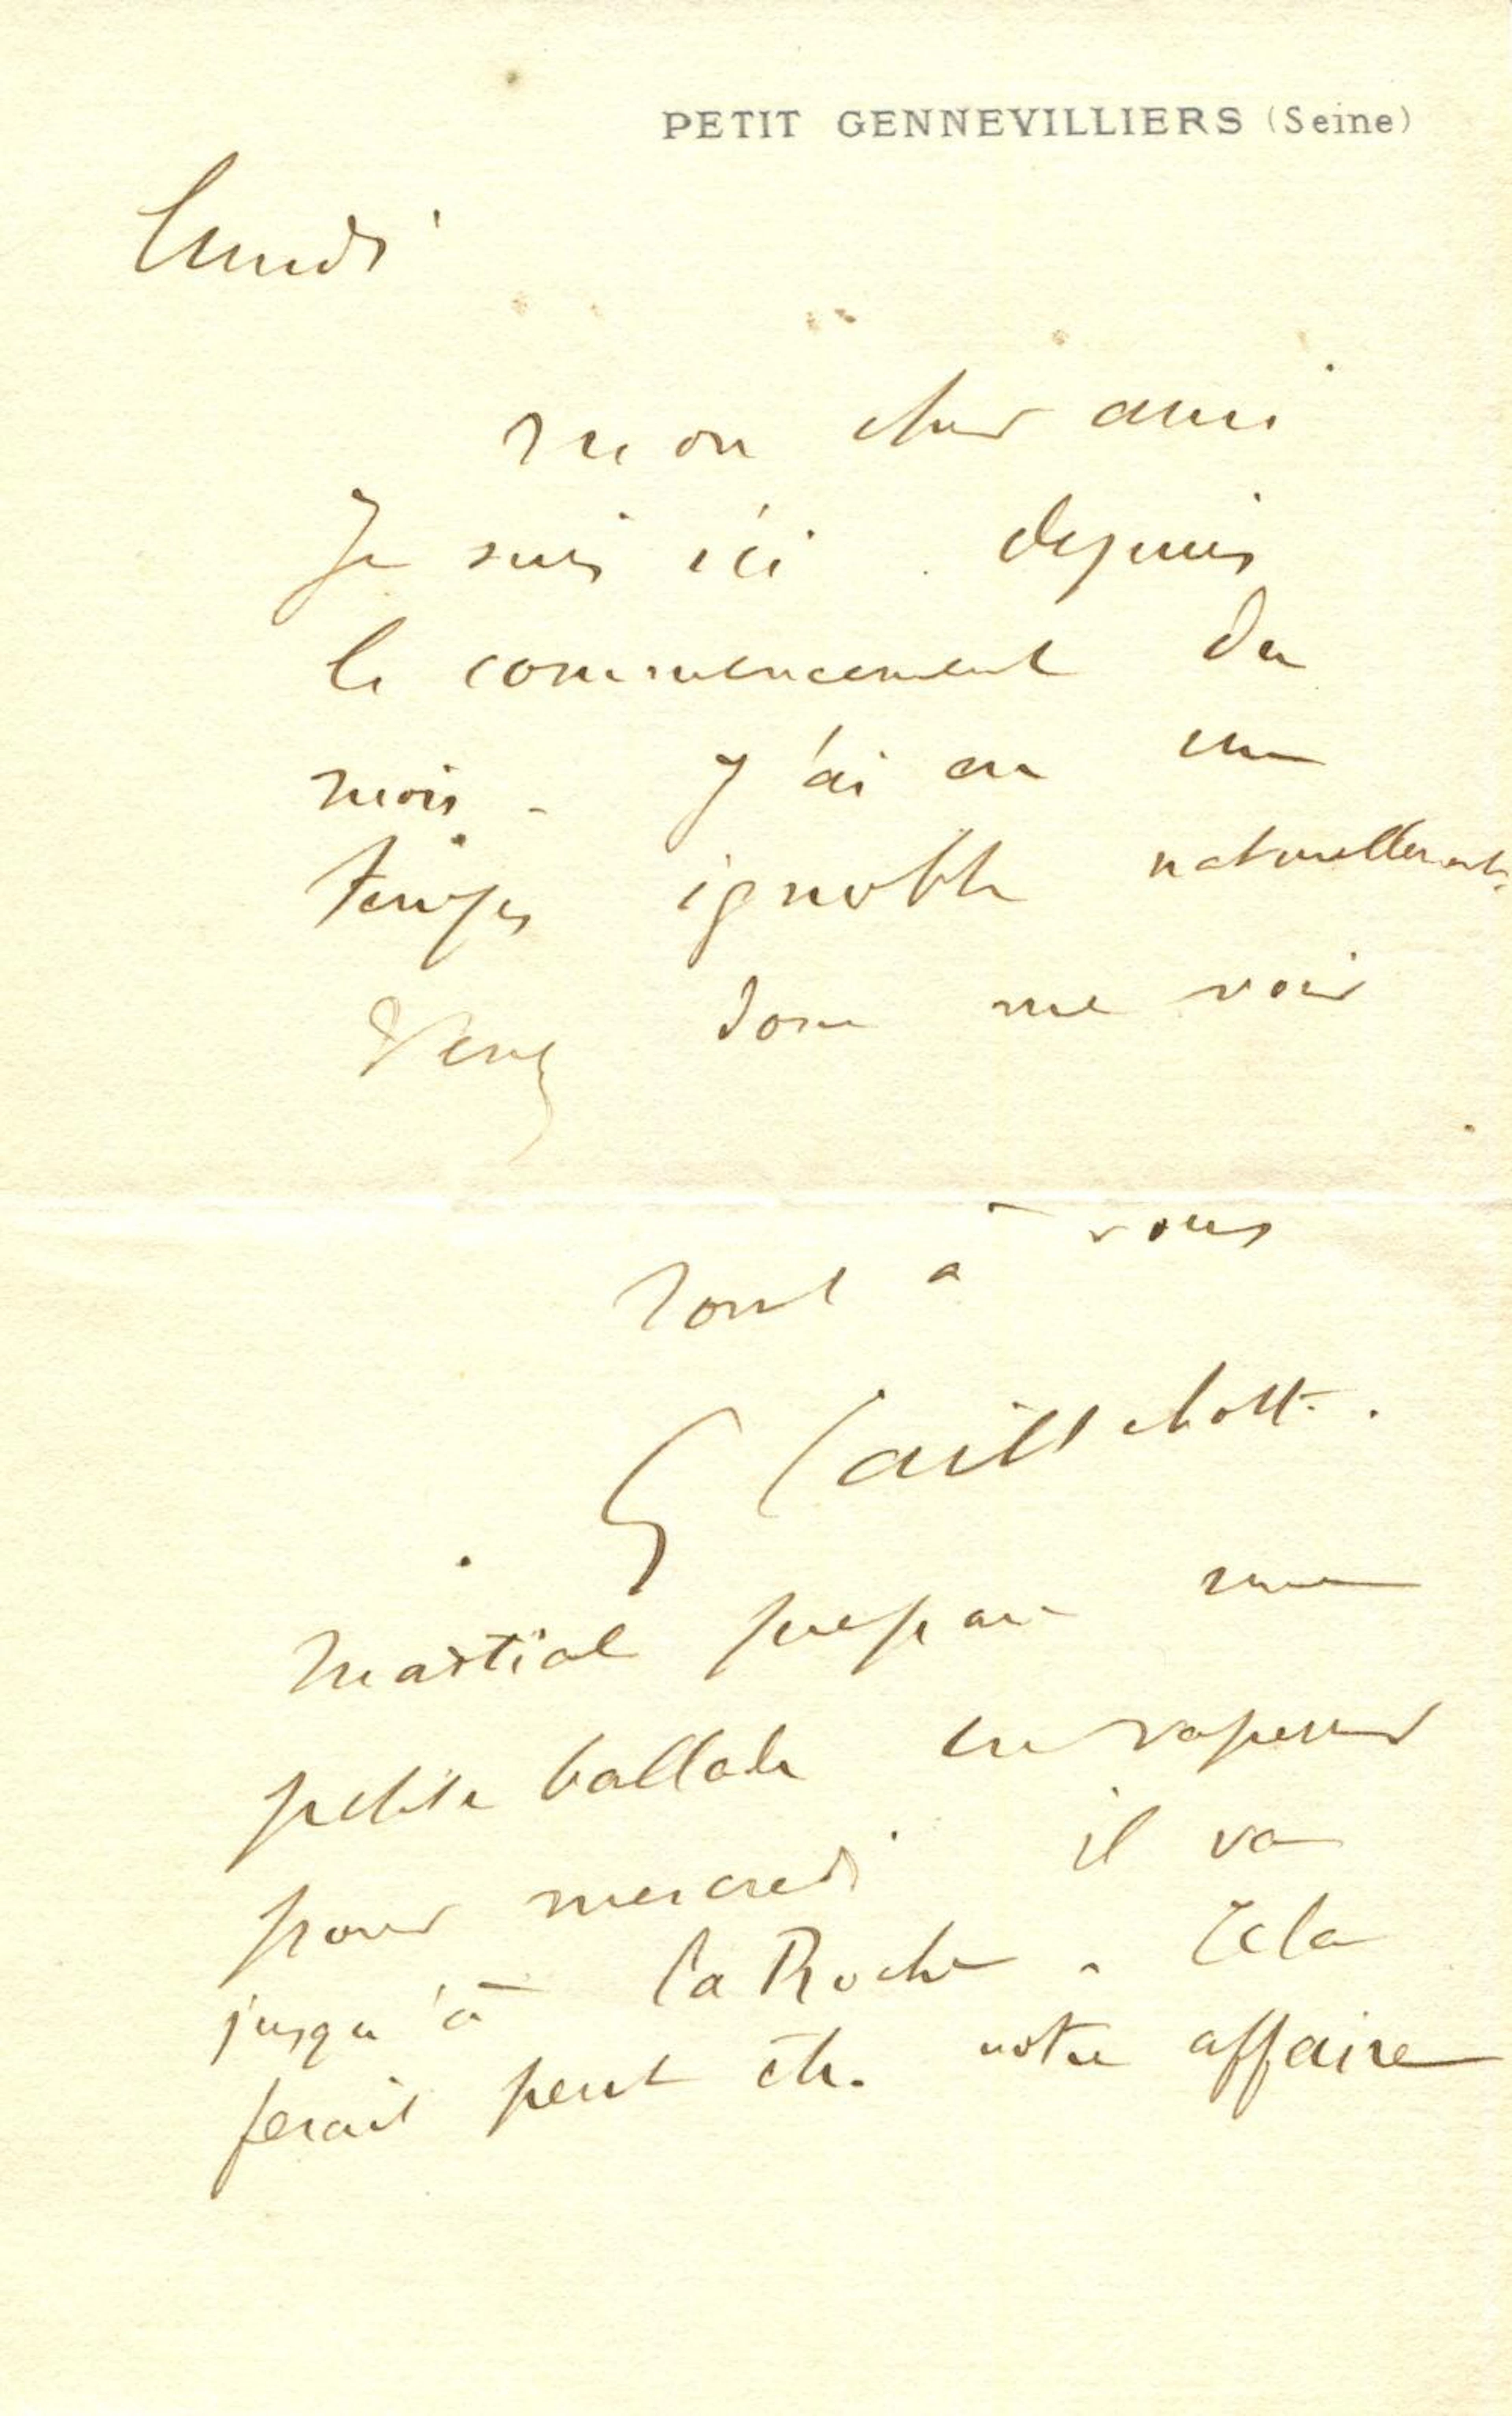 PETIT GENNEVILLIERS (Seine)
lundi
mon cher ami
Je suis ici depuis
le commencement du
mois - J'ai eu un
temps ignoble naturellement.
Venez donc me voir
Tout à vous
G Caillebotte.
Martial prepare une
petite ballade en vapeur
pour mercredi il va
jusqu'à la Roche - Cela
ferait peut être notre affaire